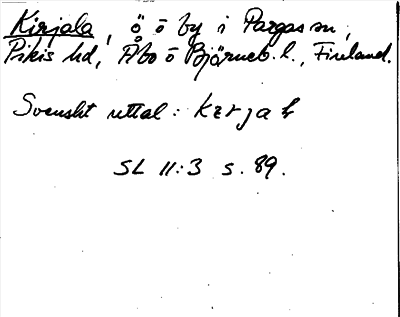 Kirjala, ö o by i Pargas sn,
Pikis hd, Åbo o Björneb. l., Finland.
Svenskt uttal:
SL 11:3 s. 89.